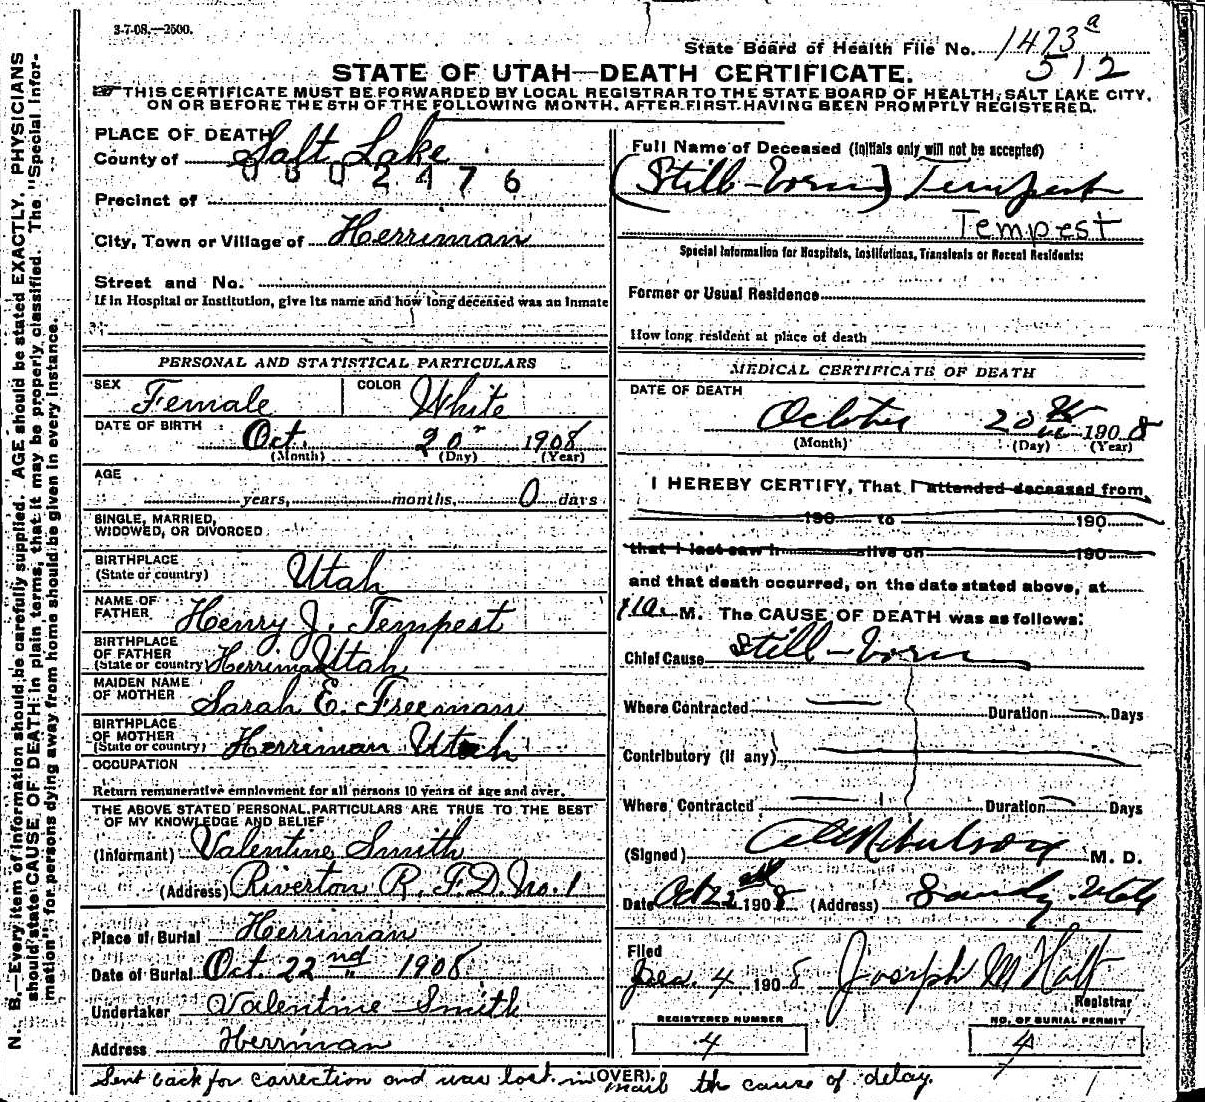 3-7-08.—2500.
State Board of Health File No. 1473a
512
STATE OF UTAH—DEATH CERTIFICATE.
THIS CERTIFICATE MUST BE FORWARDED BY LOCAL REGISTRAR TO THE STATE BOARD OF HEALTH, SALT LAKE CITY,
ON OR BEFORE THE 5TH OF THE FOLLOWING MONTH, AFTER FIRST HAVING BEEN PROMPTLY REGISTERED.
N. B.—Every item of information should be carefully supplied. AGE should be stated EXACTLY. PHYSICIANS
should state CAUSE OF DEATH in plain terms, that it may be properly classified. The "Special Infor-
mation" for persons dying away from home should be given in every instance.
PLACE OF DEATH
County of Salt Lake
0002476
Precinct of
City, Town or Village of Herriman
Street and No.
If in Hospital or Institution, give its name and how long deceased was an inmate
PERSONAL AND STATISTICAL PARTICULARS
SEX Female COLOR White
DATE OF BIRTH Oct. 20 1908
(Month) (Day) (Year)
AGE
years, months, 0 days
SINGLE, MARRIED,
WIDOWED, OR DIVORCED
BIRTHPLACE
(State or country) Utah
NAME OF
FATHER Henry J. Tempest
BIRTHPLACE
OF FATHER
(State or country) Herriman Utah
MAIDEN NAME
OF MOTHER Sarah E. Freeman
BIRTHPLACE
OF MOTHER
(State or country) Herriman Utah
OCCUPATION
Return remunerative employment for all persons 10 years of age and over.
THE ABOVE STATED PERSONAL PARTICULARS ARE TRUE TO THE BEST
OF MY KNOWLEDGE AND BELIEF
(Informant) Valentine Smith
(Address) Riverton R. F. D. No. 1
Place of Burial Herriman
Date of Burial Oct. 22nd 1908
Undertaker Valentine Smith
Address Herriman
Full Name of Deceased (Initials only will not be accepted)
(Still-born) Tempest
Tempest
Special Information for Hospitals, Institutions, Transients or Recent Residents:
Former or Usual Residence
How long resident at place of death
MEDICAL CERTIFICATE OF DEATH
DATE OF DEATH
October 20th 1908
(Month) (Day) (Year)
I HEREBY CERTIFY, That I attended deceased from
190 to 190
that I last saw h alive on 190
and that death occurred, on the date stated above, at
M. The CAUSE OF DEATH was as follows:
Chief Cause Still-born
Where Contracted Duration Days
Contributory (if any)
Where Contracted Duration Days
(Signed) M. D.
Date Oct 22 1908 (Address) Sandy Utah
Filed
Dec. 4 1908 Joseph M Holt
Registrar
REGISTERED NUMBER
4
NO. OF BURIAL PERMIT
4
(OVER)
Sent back for correction and was lost in mail th cause of delay.